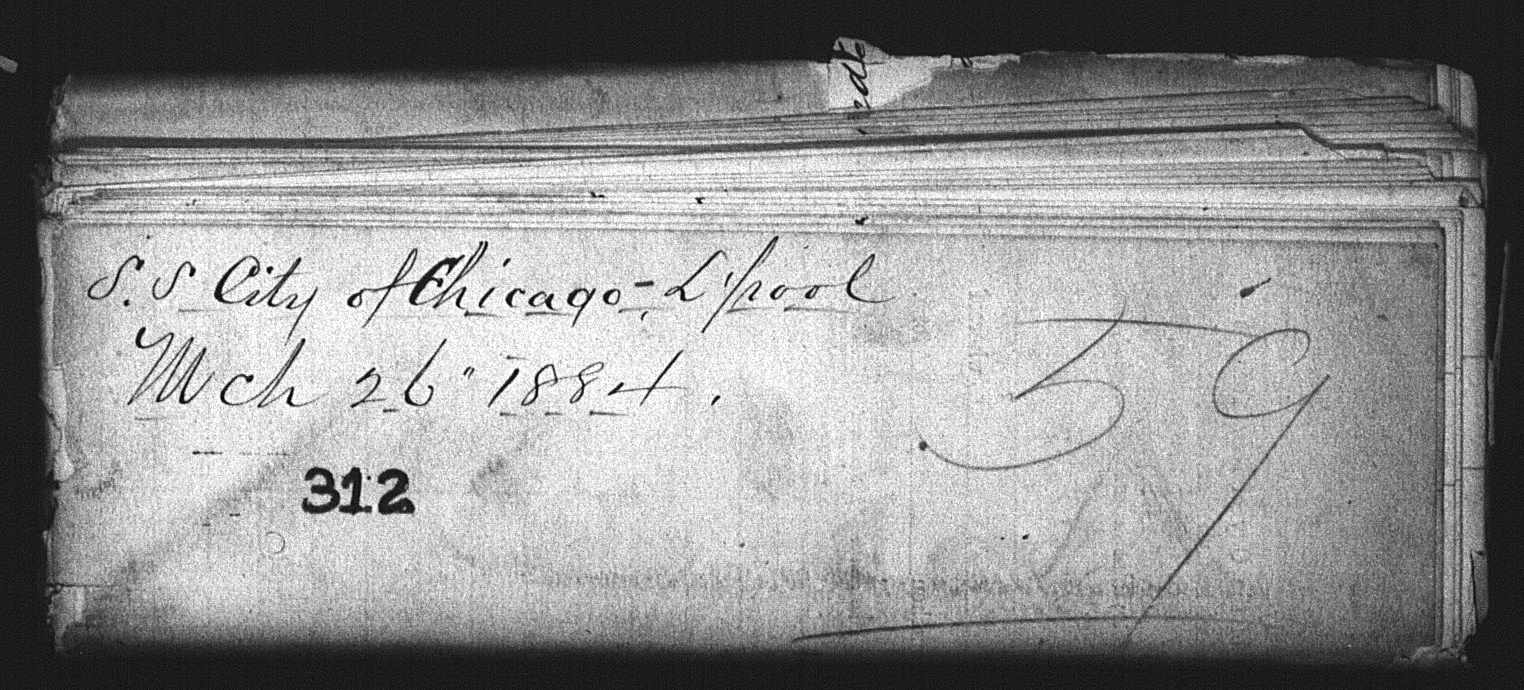 S.S City of Chicago - L'pool
59
Mch 26" 1884.
312